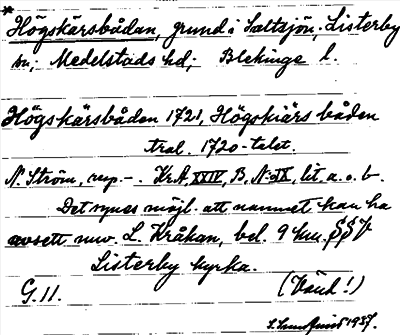 *
Högskärsbådan, grund i Saltsjön; Listerby
sn; Medelstads hd; Blekinge l.
Högskärsbåden 1721, Högskiärs båden
tral. 1720-talet.
N. Ström, resp. –. Kr.A, XXIV, B, N:o IX, lit. a. o. b.
Det synes möjl. att namnet kan ha
avsett nuv. L. Kråkan, bel. 9 km. SSV
Listerby kyrka.
G. 11. (Vänd!)
1937.